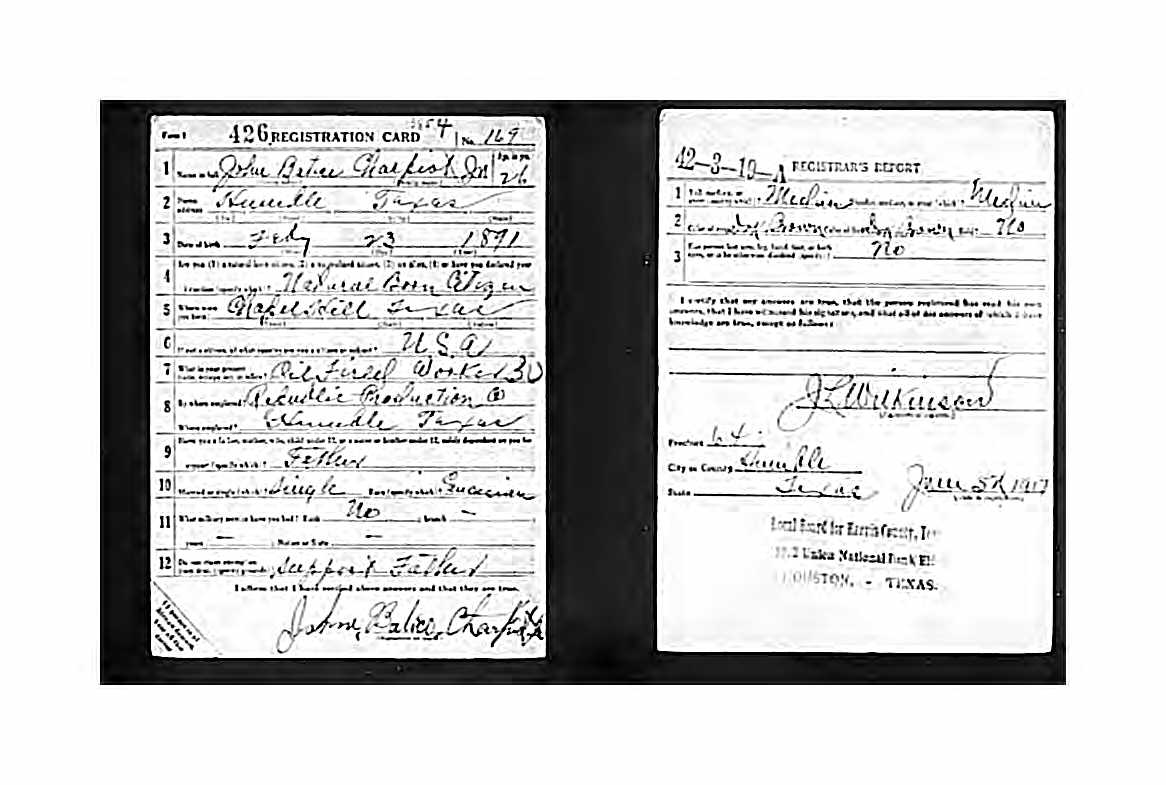 Form 1 426 REGISTRATION CARD No. 169
1 Name in full John Chapiost Jr Age, in yrs. 26
2 Home address Humble Texas
3 Date of birth Feby 23 1891
4 Are you (1) a natural born citizen, (2) a naturalized citizen, (3) an alien, (4) or have you declared your
intention (specify which)? Natural Born Citizen
5 Where were you born? Chapel Hill Texas
6 If not a citizen, of what country are you a citizen or subject? U S A
7 What is your present trade, occupation, or office? Oil Field Worker 30
8 By whom employed? Republic Production Co
Where employed? Humble Texas
9 Have you a father, mother, wife, child under 12, or a sister or brother under 12, solely dependent on you for
support (specify which)? Father
10 Married or single (which)? Single Race (specify which)?
11 What military service have you had? Rank No ; branch —
years — ; Nation or State —
12 Do you claim exemption from draft (specify grounds)? Support Father
I affirm that I have verified above answers and that they are true.
John
42—3—19—A REGISTRAR'S REPORT
1 Tall, medium, or short (specify which)? Medium Slender, medium, or stout (which)? Medium
2 Color of eyes? Brown Color of hair? Brown Bald? No
3 Has person lost arm, leg, hand, foot, or both
eyes, or is he otherwise disabled (specify)? No
I certify that my answers are true, that the person registered has read his own
answers, that I have witnessed his signature, and that all of his answers of which I have
knowledge are true, except as follows:
J L Wilkinson
Precinct 64
City or County Humble
State Texas June 5th 1917
Local Board for Harris County, Tex
Union National Bank
HOUSTON, - TEXAS.